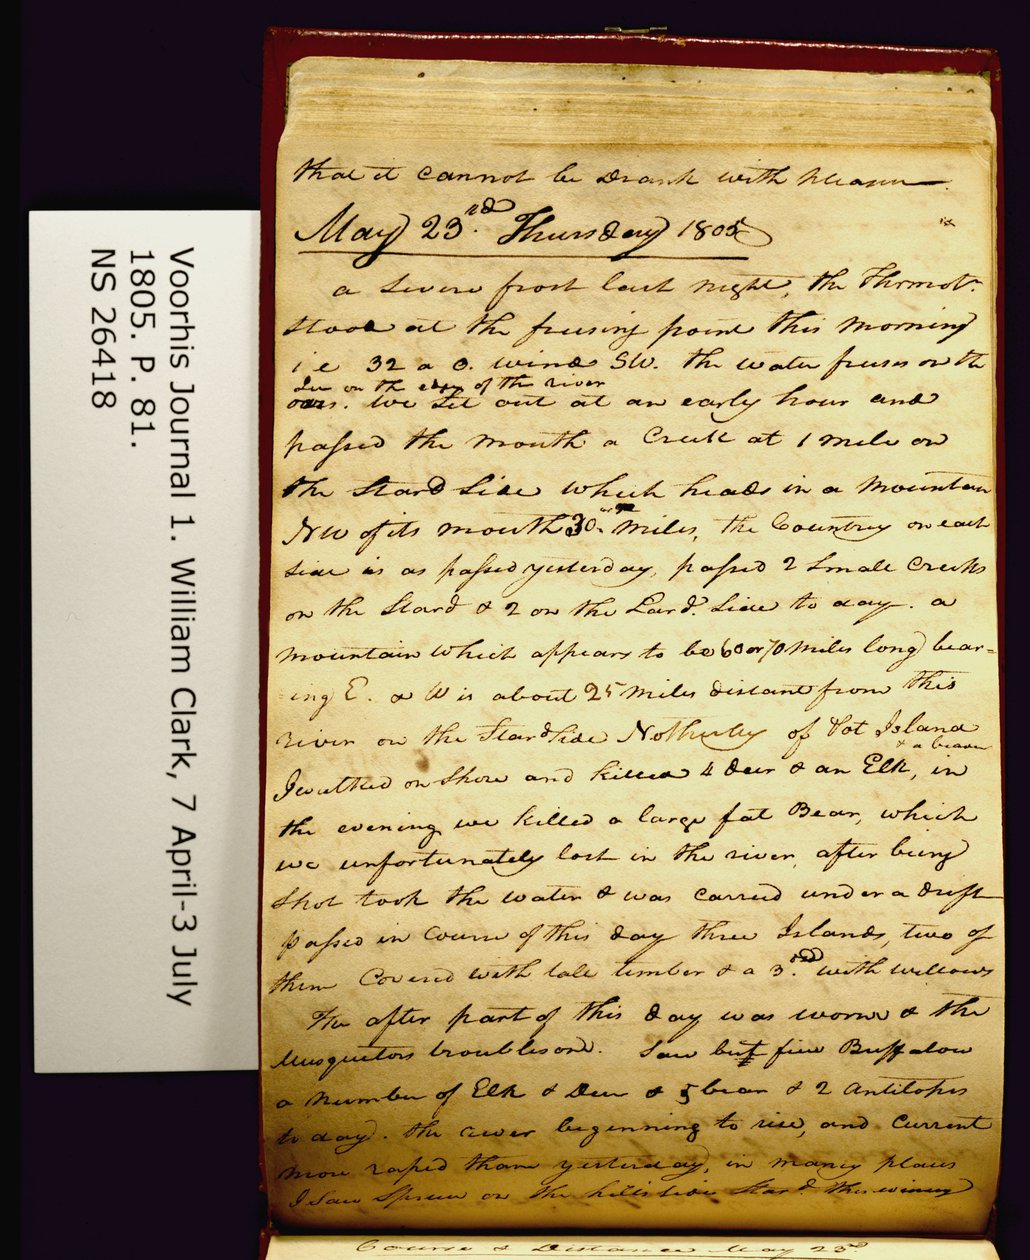 Voorhis Journal 1. William Clark, 7 April-3 July
1805. P. 81.
NS 26418
that it cannot be Drank with
May 23rd Thursday 1805
a Severe frost last night, the Thrmotr.
Stood at the freesing point this morning
i e 32 a 0. wind SW. the water freses on the
Ice on the edge of the river
oars. We Set out at an early hour and
passed the mouth a Creek at 1 mile on
the Stard Side which heads in a mountain
NW of its mouth 30 miles, the Countrey on each
Side is as passed yesterday, passed 2 Small Creeks
on the Stard & 2 on the Lard. Side to day. a
mountain which appears to be 60 or 70 miles long bear-
ing E. & W is about 25 miles distant from this
river on the Stard Side Notherley of Pot Island
& a beaver
I walked on Shore and killed 4 deer & an Elk, in
the evening we killed a large fat Bear, which
we unfortunately lost in the river, after being
Shot took the water & was Carried under a drift
passed in course of this day three Islands, two of
them Covered with tall timber & a 3rd with willows
The after part of this day was worm & the
Musquetors troublesom. Saw but fiew Buffalow
a number of Elk & Deer & 5 bear & 2 Antilopes
to day. the river beginning to rise, and Current
more rapid than yesterday, in maney places
I Saw Spruce on the hills Sides Stard. this evening
Course & Distance May 23d